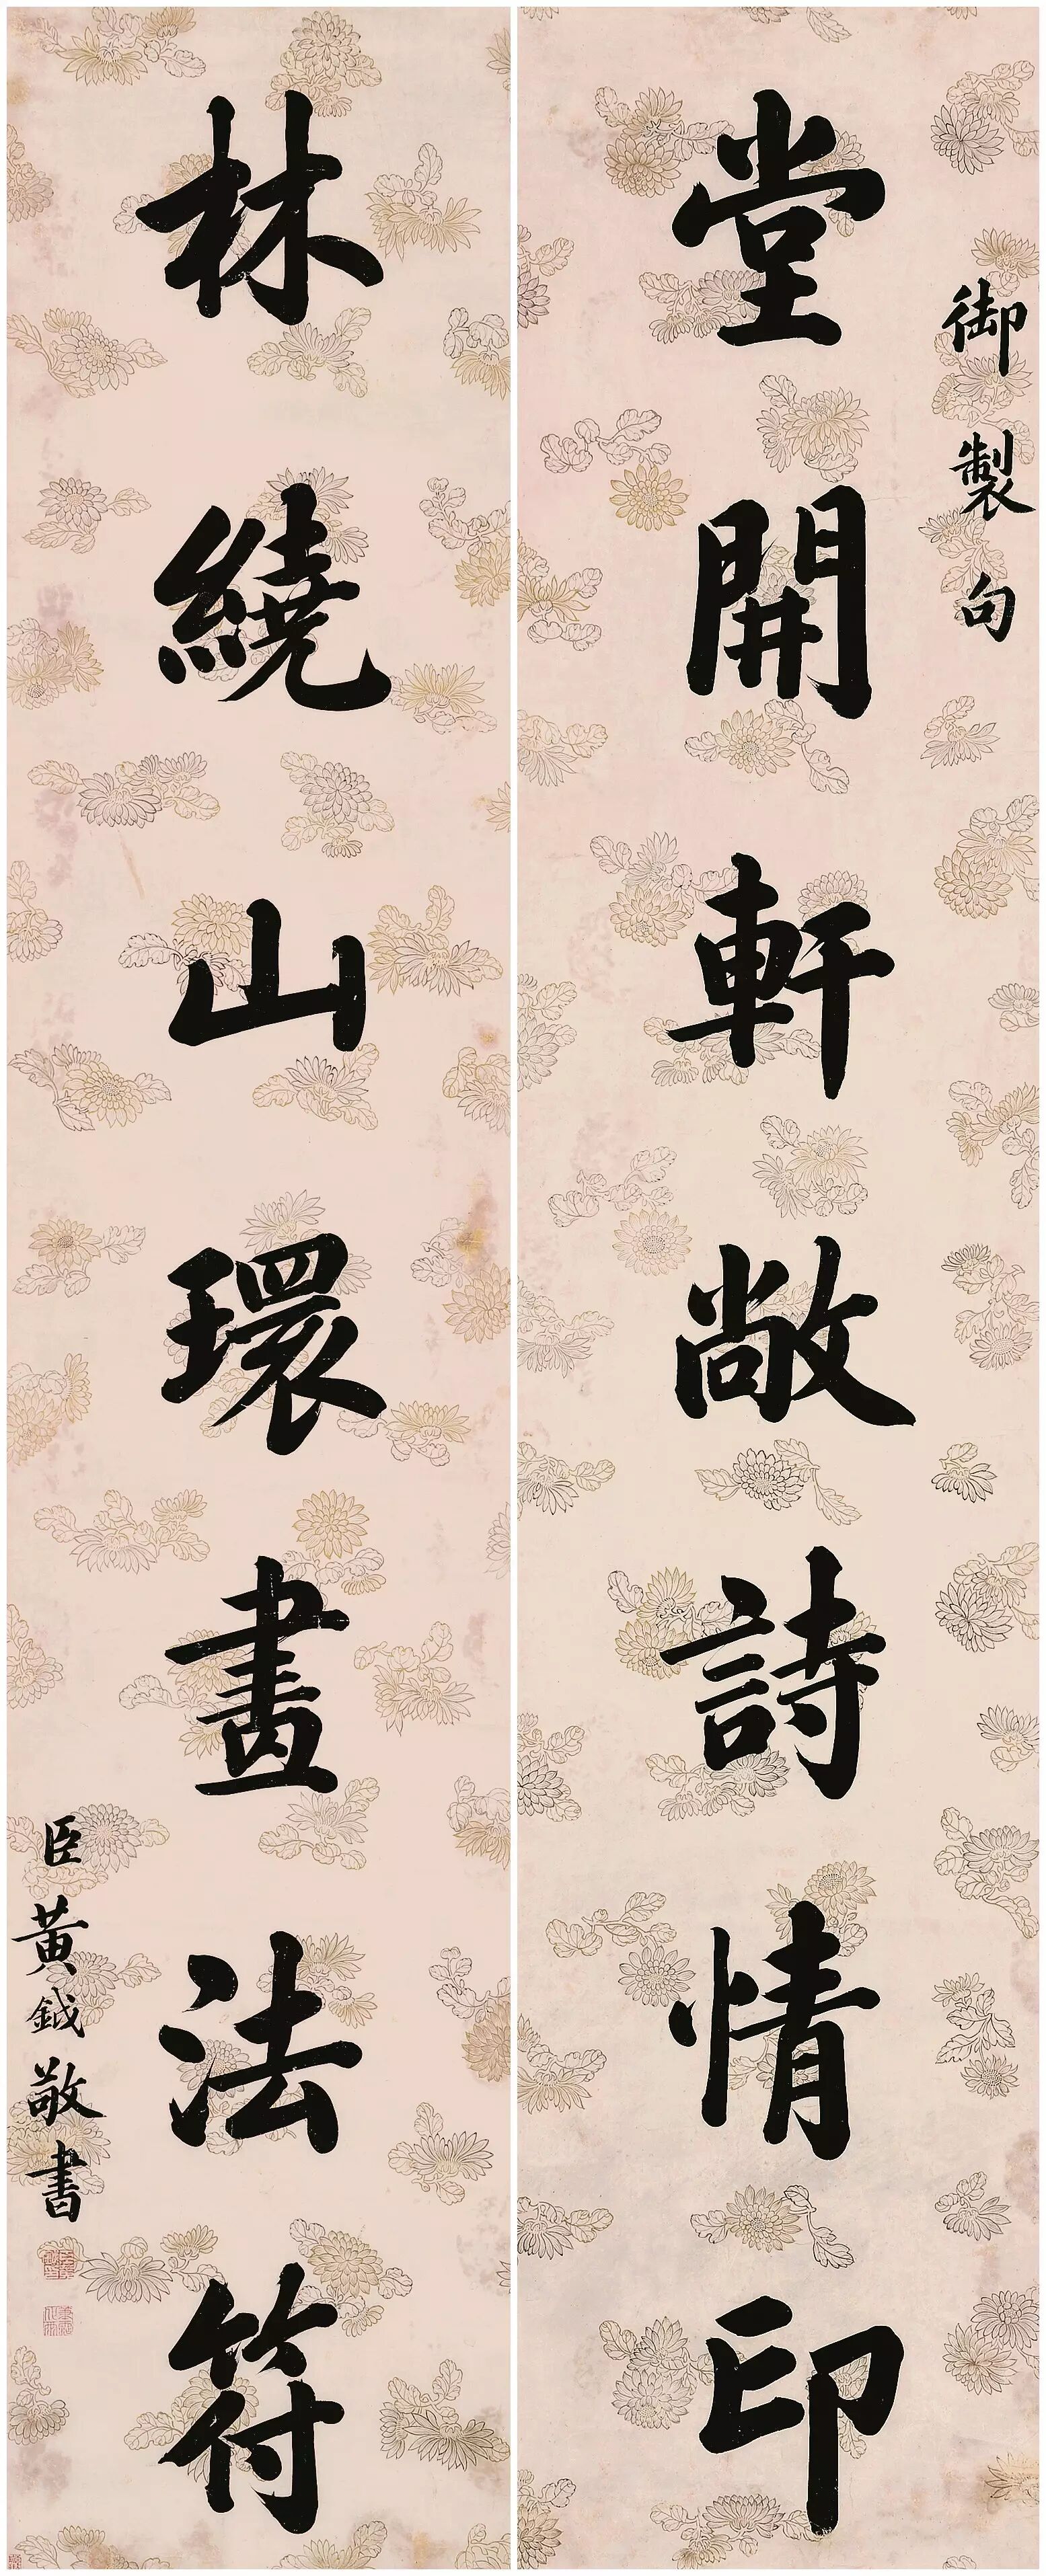 御製句
堂開軒敞詩情印
林繞山環畫法符
臣黃鉞敬書